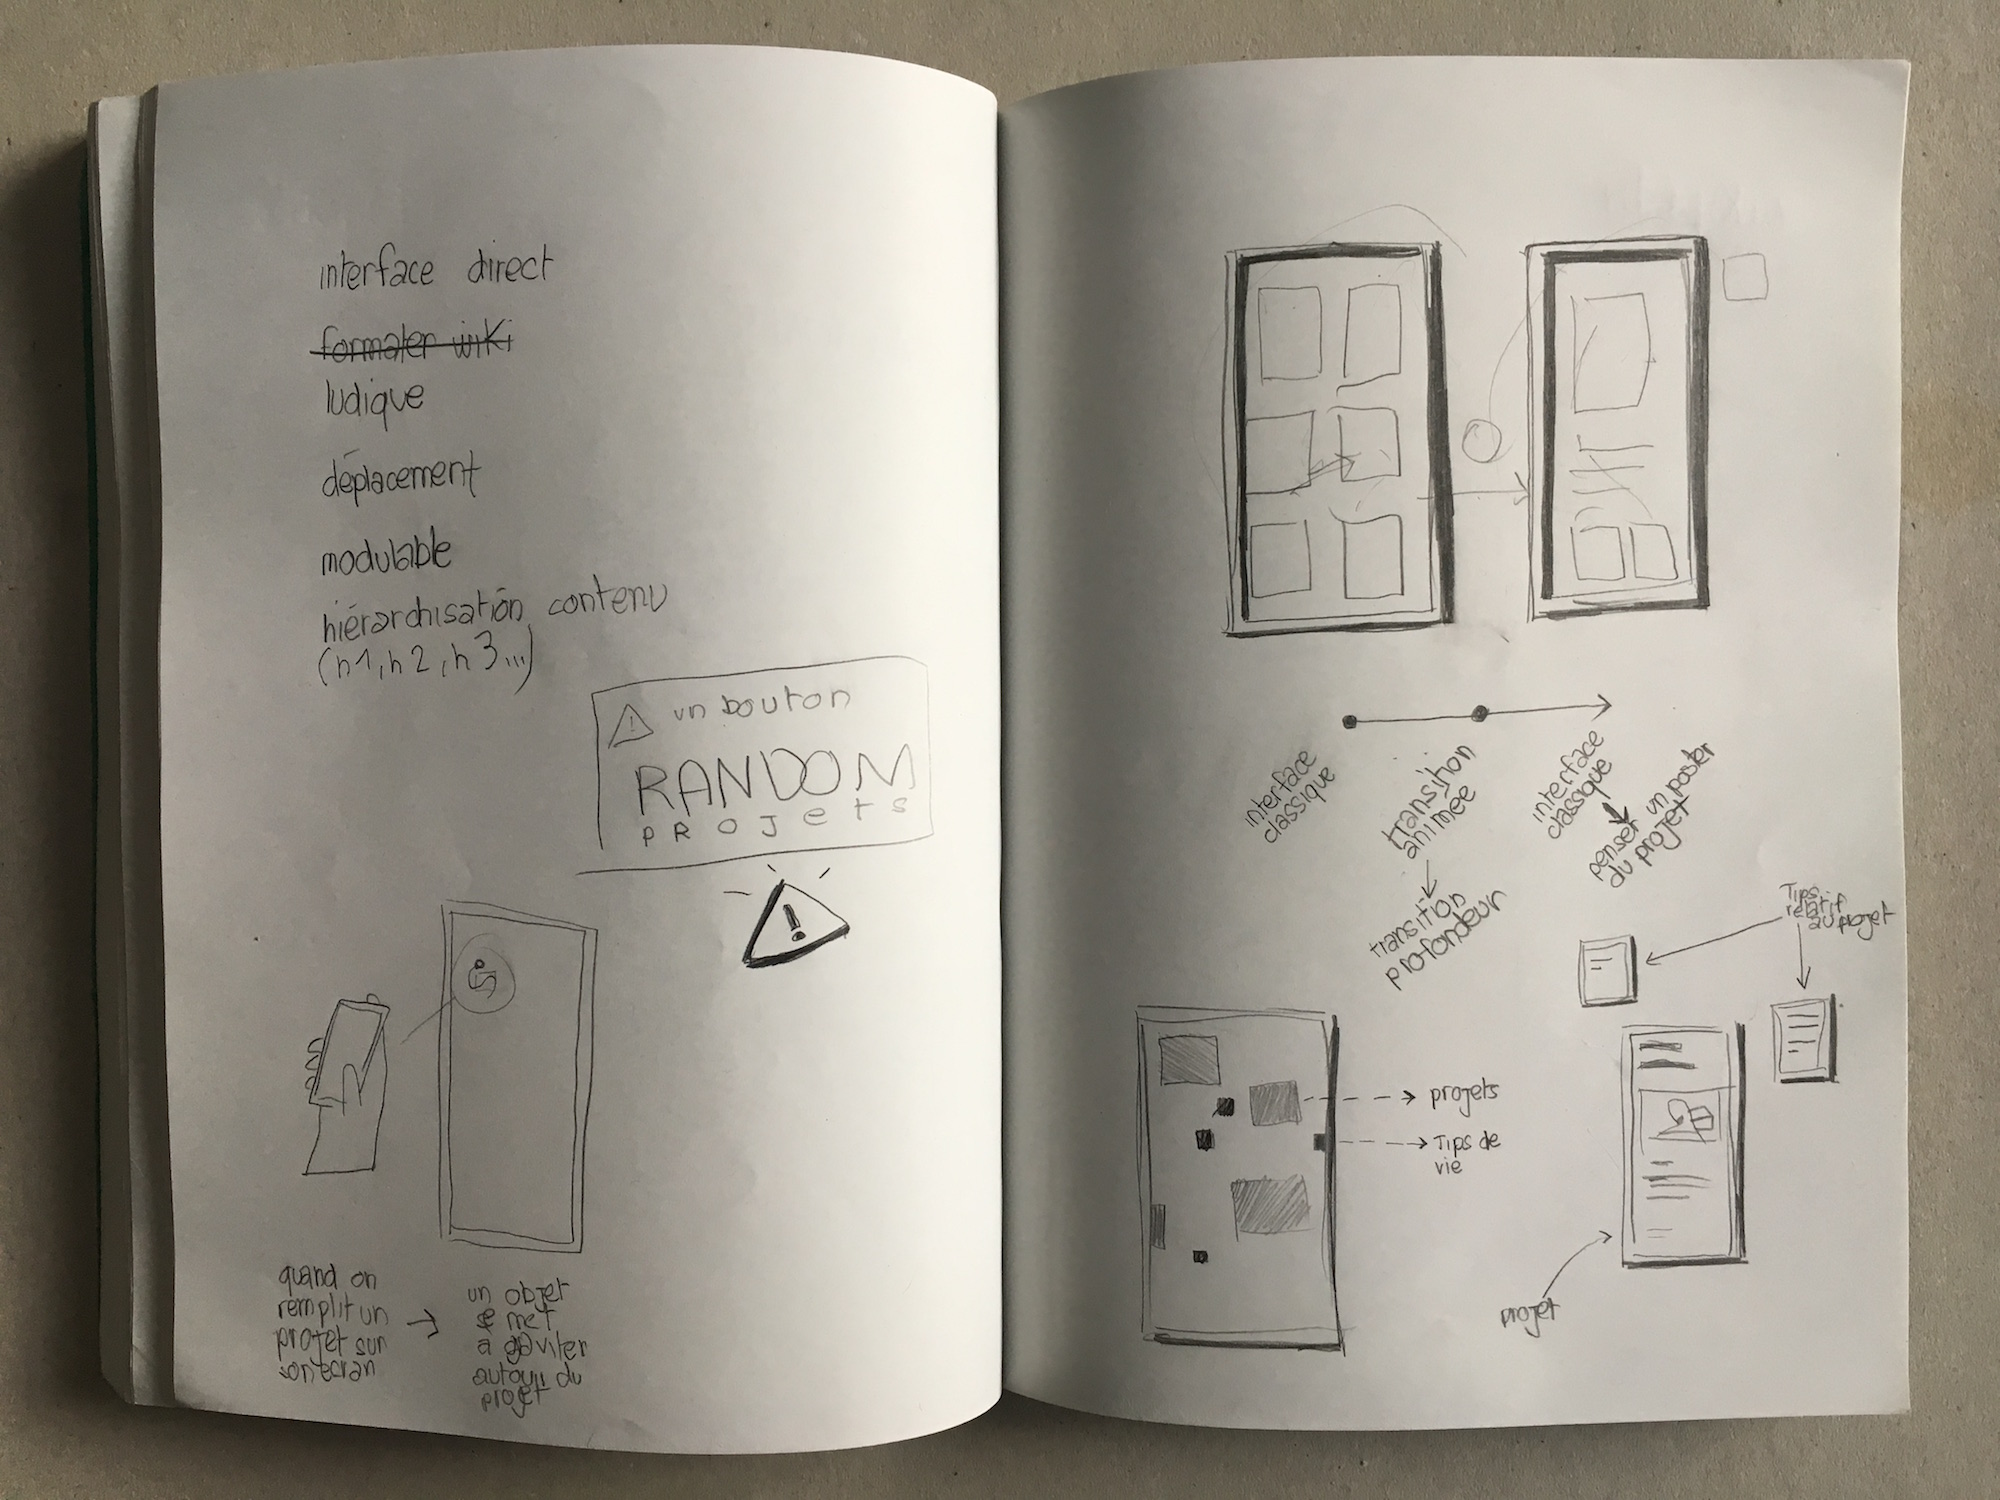 interface direct
formater wiki
ludique
déplacement
modulable
hiérarchisation contenu
(h1, h2, h3...)
! un bouton
RANDOM
PROJets
!
quand on
remplit un
projet sur
son écran
→
un objet
se met
a graviter
autour du
projet
interface
classique
transition
animée
transition
profondeur
interface
classique
penser un poster
du projet
Tips
relatif
au projet
projets
Tips de
vie
projet